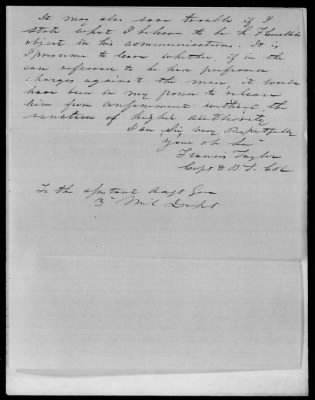 It may also save trouble if I
state what I believe to be Lt
object in his communication. It is
I presume to learn whether if in the
case referred to he had preferred
charges against the man, it would
have been in my power to release
him from confinement without the
sanction of higher authority
I am Sir, very Respectfully
Your ob Svt
Francis Taylor
Capt
To the Asst Adjt Gen
3d Mil Dept